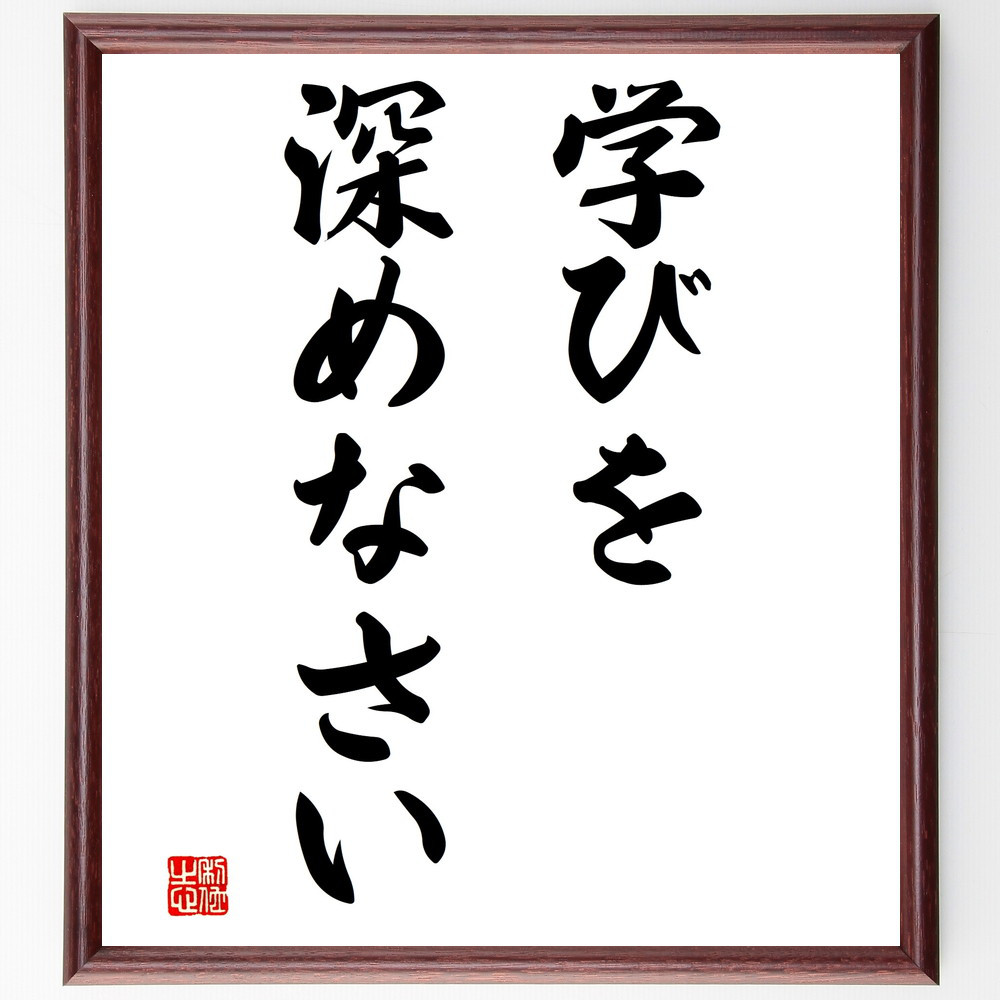 学びを
深めなさい